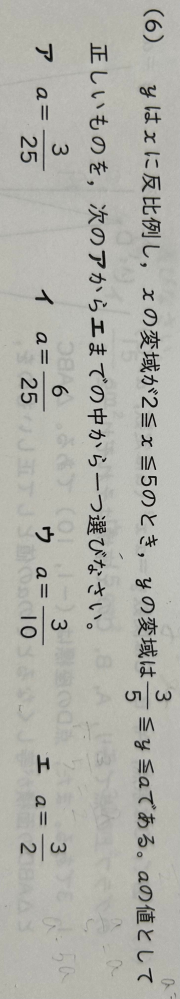 (6) yはxに反比例し，xの変域が2≦x≦5のとき，yの変域は3/5≦y≦aである。aの値として
正しいものを，次のアからエまでの中から一つ選びなさい。
ア a=3/25 イ a=6/25 ウ a=3/10 エ a=3/2